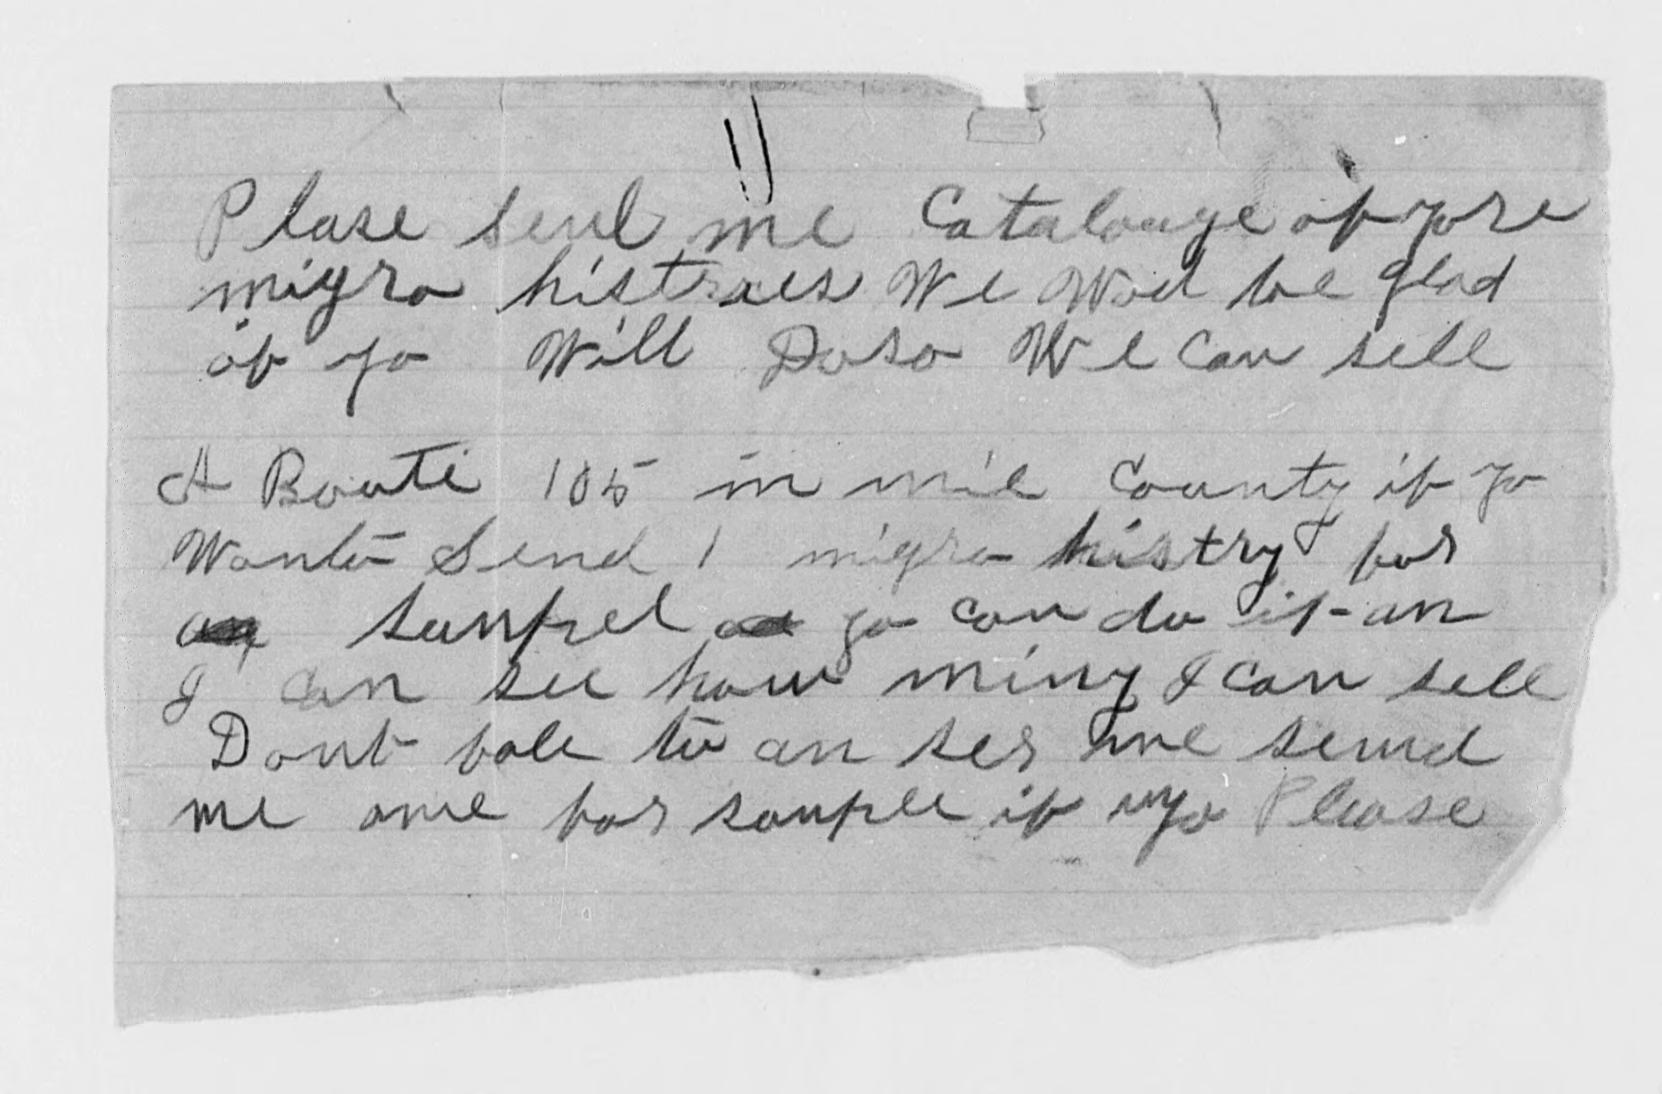 Plase send me Catalouge of yore
migro histraes We Wod be glad
of yo Will Doso We Can sell
A Boute 105 in mie County if yo
Wanto Send 1 migro histry for
sampel yo can do it an
I can see how miny I can sell
Dont fale to an ser me send
me one for sample if yo Please